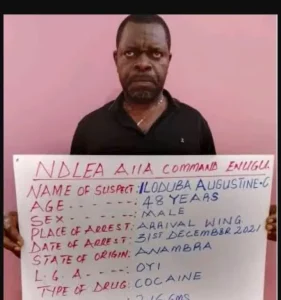 NDLEA AIIA COMMAND ENUGU
NAME OF SUSPECT: ILODUBA AUGUSTINE-C
AGE - - - - - - - : 48 YEARS
SEX - - - - - - - : MALE
PLACE OF ARREST: ARRIVAL WING
DATE OF ARREST: 31ST DECEMBER 2021
STATE OF ORIGIN: ANAMBRA
L. G. A - - - - - : OYI
TYPE OF DRUG: COCAINE
GMS